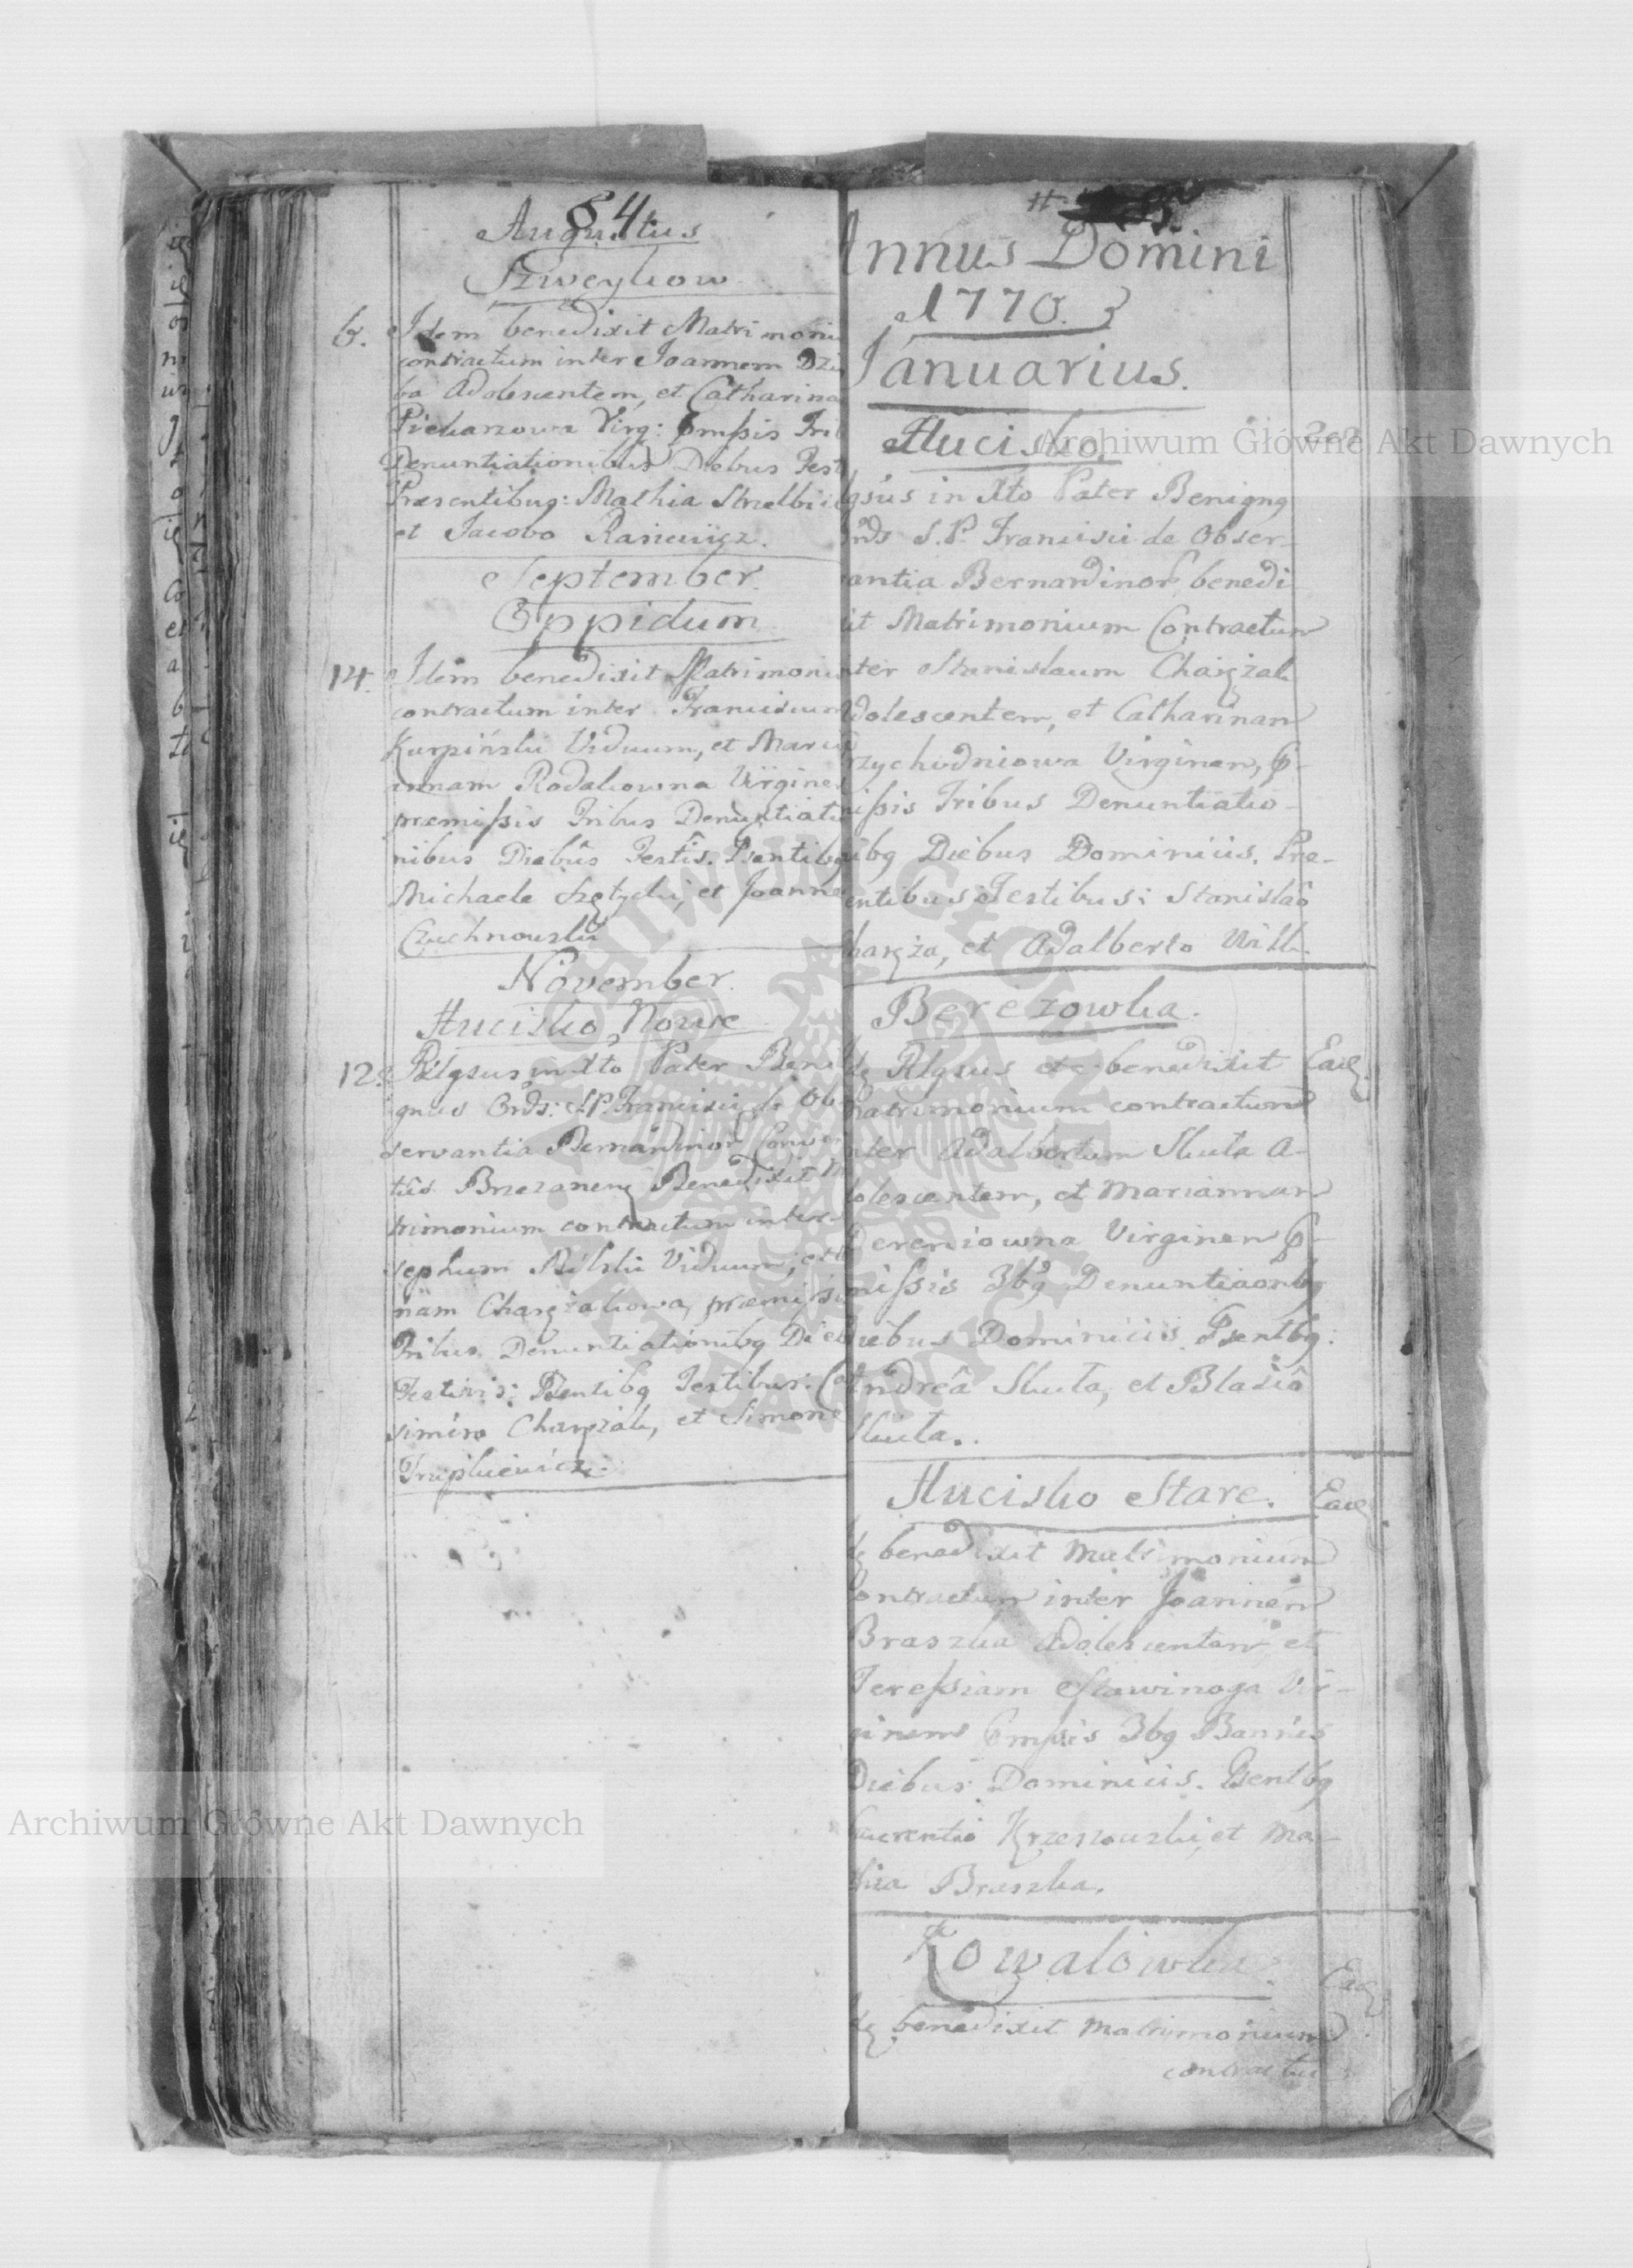 84
Augustus
Szweykow
6. Idem benedixit Matrimoniu
contractum inter Joannem Dziu
ba Adolescentem, et Catharina
Piekarzowa Virg: pmssis Trib
Denuntiationibus Diebus Fest
Praesentibus: Mathia Strzelbi
et Jacobo
September.
Oppidum
14. Idem benedixit Matrimoniu
contractum inter Franciscum
Kurpiński Viduum, et Maria
nnam Rodakowna Virginem
praemissis Tribus Denuntiatio
nibus Diebus Festis. Psentibq
Michaele et Joanne
Czechnowski
November.
Hucisko Nowe
12. Rlgsus in Xto Pater Beni
gnus Ords: S.P. Francisci de Ob
servantia Bernardinor Conven
tus Brzezanen Benedixit Ma
trimonium contractum inter
sephum Milski Viduum, et
nam Charęzakowa, praemissis
Tribus Denuntiationibq Dieb
Festivis: Psentibq Testibus: Ca
simiro Charęzak, et Simone
Trupkiewicz.
Annus Domini
1770.
Januarius.
Hucisko
lgsus in Xto Pater Benignq
Ords S.P. Francisci de Obser-
vantia Bernardinor benedi
xit Matrimonium Contractum
nter Stanislaum Charęzak
dolescentem, et Catharinam
rzychodniowa Virginem, p-
missis Tribus Denuntiatio-
nibq Diebus Dominicis. Prae-
entibus Testibus: Stanislao
haręza, et Adalberto Wilk.
Berezowka.
dq Rlgsus etc benedixit Eaq
Matrimonium contractum
nter Adalbertum Skuta A-
dolescentem, et Mariannam
Dereniowna Virginem p-
missis 3bq Denuntiaonbq
Diebus Dominicis. Psentbq:
Andreâ Skuta, et Blasiô
Skuta.
Hucisko Stare. Eaq
dq benedixit Matrimonium
contractum inter Joannem
Braszka Adolescentem, et
Teressiam Stawinoga Vir-
ginem pmssis 3bq Bannis
Diebus Dominicis. Psentbq
Laurentio Krzeszowski, et Ma-
thia Braszka.
Kowalowka. Eaq
dq benedixit Matrimonium
contractu
Archiwum Główne Akt Dawnych
Archiwum Główne Akt Dawnych
ARCHIWUM GŁÓWNE AKT DAWNYCH